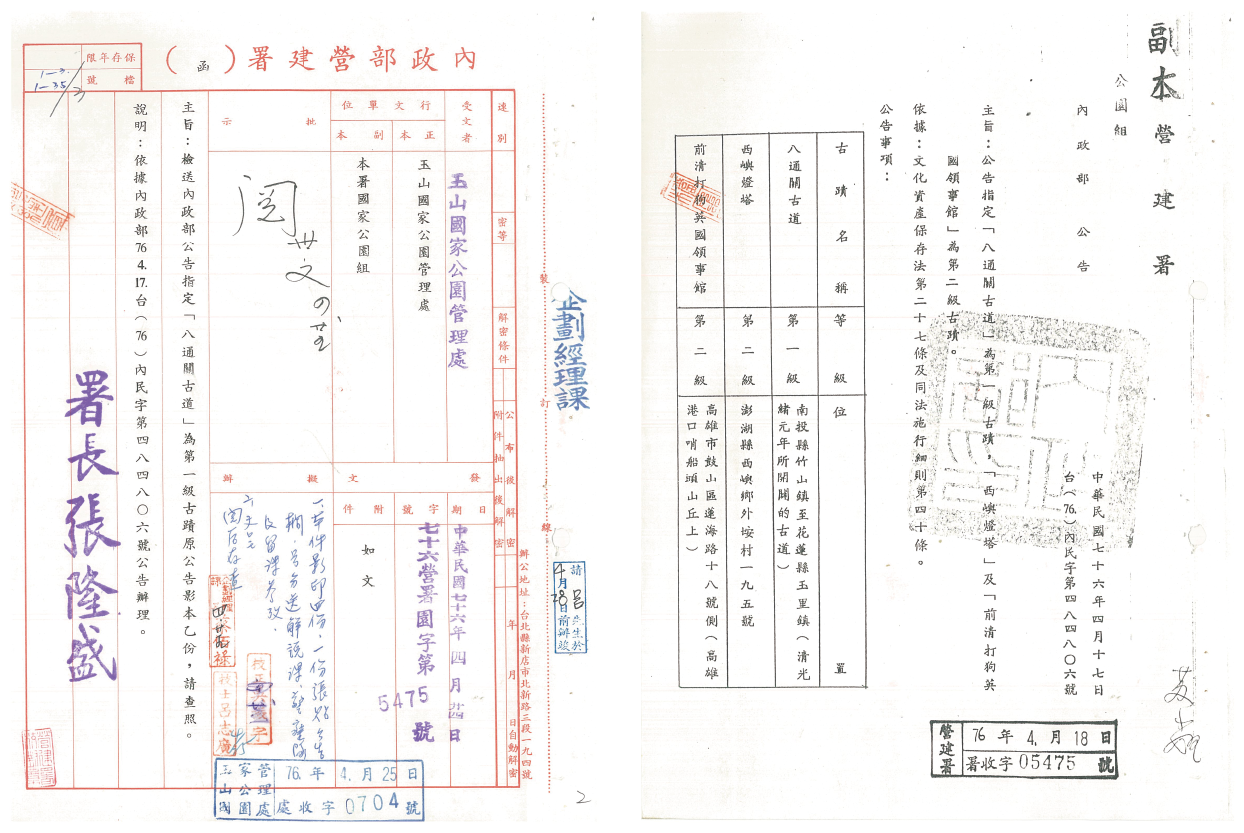 內政部營建署（函）
保存年限
檔號
1-3
1-35/3
速別
密等
解密條件
公布後解密
附件抽出後解密
年 月 日自動解密
受文者
玉山國家公園管理處
行文單位
正本
玉山國家公園管理處
副本
本署國家公園組
批示
閱
發文
日期
中華民國七十六年四月廿四日
字號
七十六營署園字第5475號
附件
如文
擬辦
主旨：檢送內政部公告指定「八通關古道」為第一級古蹟原公告影本乙份，請查照。
說明：依據內政部76 4. 17.台（76）內民字第四八四八〇六號公告辦理。
署長張隆盛
裝
訂
線
企劃經理課
辦公地址：台北縣新店市北新路三段一九四號
請呂先生於
4月28日前辦竣
技士呂志廣
玉山國家公園管理處
76.年4.月25日
處收字0704號
2
副本
營建署
公園組
內政部公告
中華民國七十六年四月十七日
台（76.）內民字第四八四八〇六號
主旨：公告指定「八通關古道」為第一級古蹟，「西嶼燈塔」及「前清打狗英
國領事館」為第二級古蹟。
依據：文化資產保存法第二十七條及同法施行細則第四十條。
公告事項：
古蹟名稱
等級
位置
八通關古道
第一級
南投縣竹山鎮至花蓮縣玉里鎮（清光
緒元年所開闢的古道）
西嶼燈塔
第二級
澎湖縣西嶼鄉外垵村一九五號
前清打狗英國領事館
第二級
高雄市鼓山區蓮海路十八號側（高雄
港口哨船頭山丘上）
營建署
76年4.月18日
署收字05475號